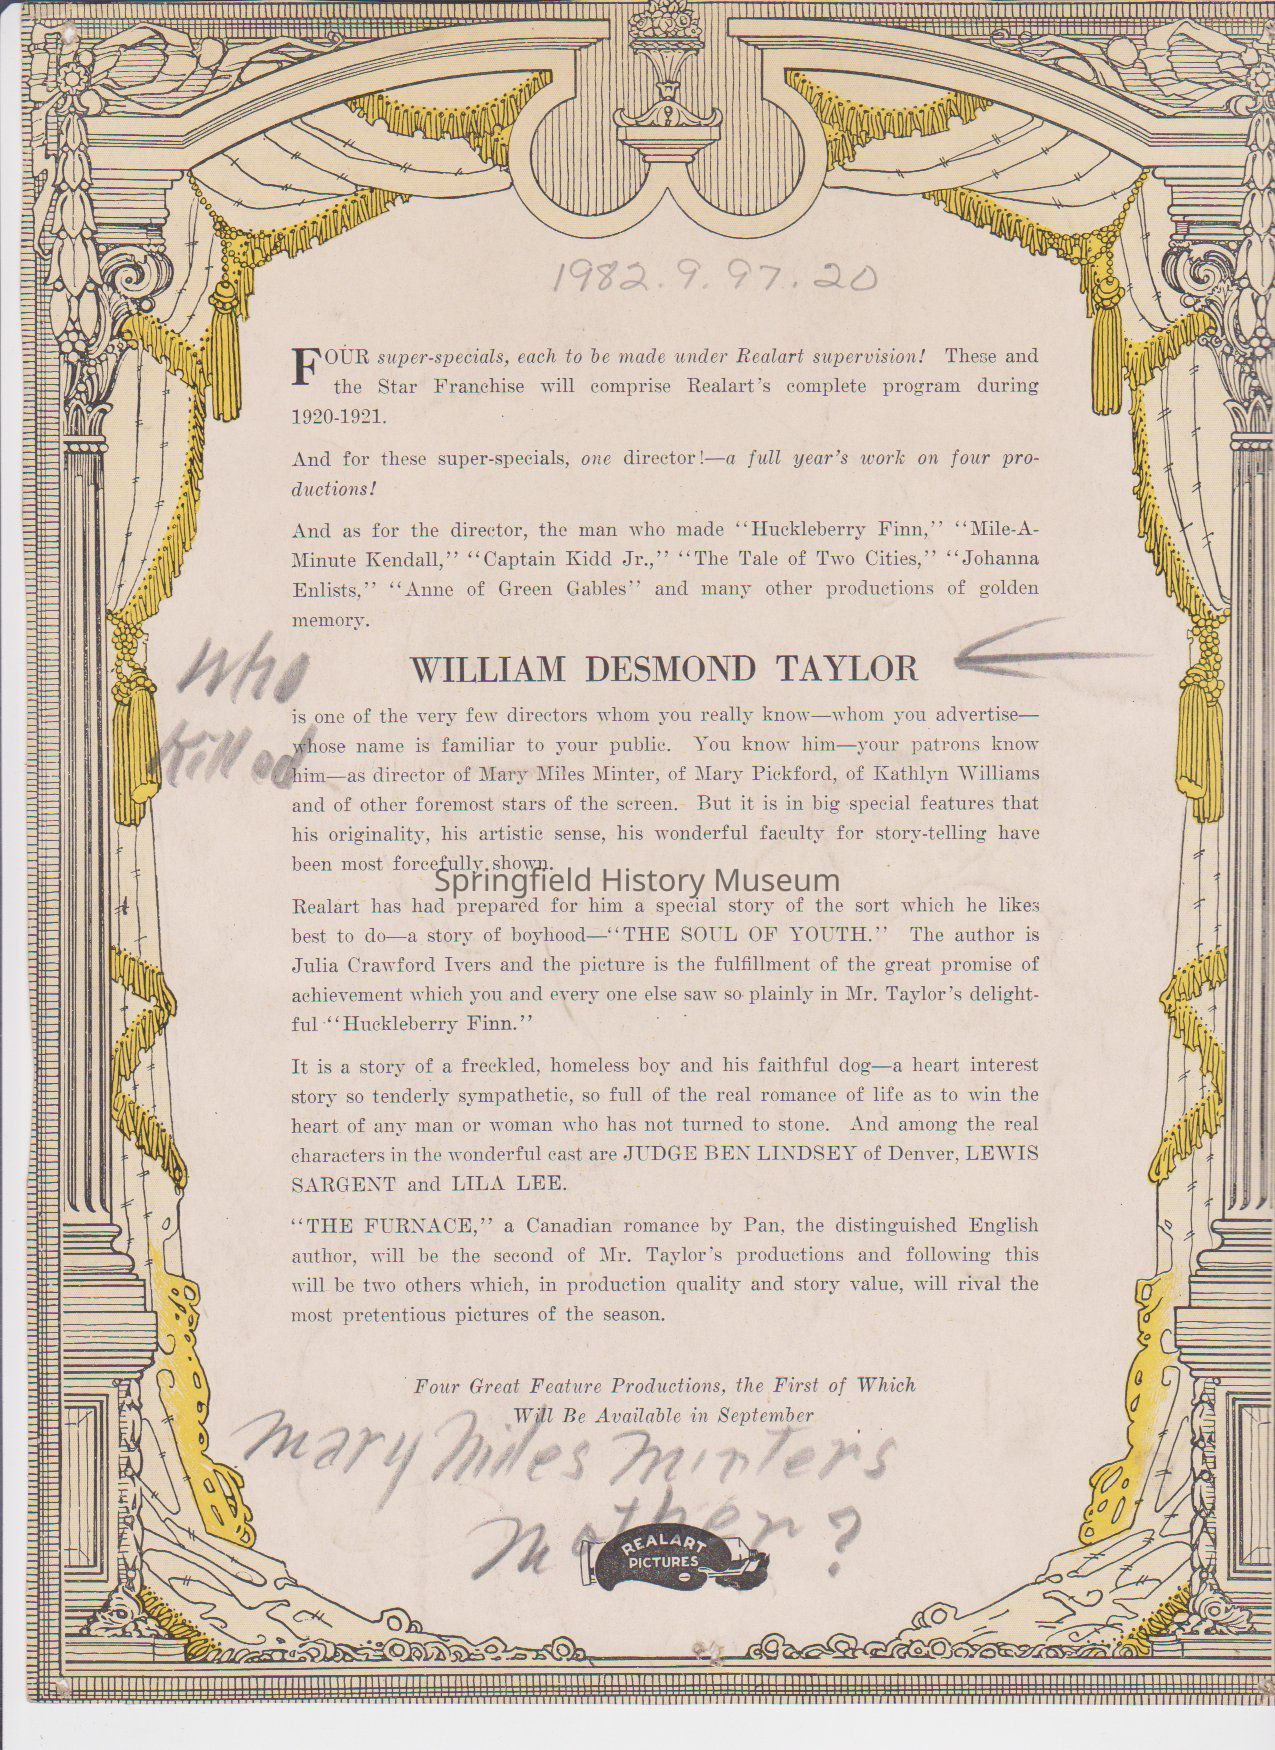 1982.9.97.20
FOUR super-specials, each to be made under Realart supervision! These and
the Star Franchise will comprise Realart's complete program during
1920-1921.
And for these super-specials, one director!—a full year's work on four pro-
ductions!
And as for the director, the man who made "Huckleberry Finn," "Mile-A-
Minute Kendall," "Captain Kidd Jr.," "The Tale of Two Cities," "Johanna
Enlists," "Anne of Green Gables" and many other productions of golden
memory.
Who
Killed
WILLIAM DESMOND TAYLOR
is one of the very few directors whom you really know—whom you advertise—
whose name is familiar to your public. You know him—your patrons know
him—as director of Mary Miles Minter, of Mary Pickford, of Kathlyn Williams
and of other foremost stars of the screen. But it is in big special features that
his originality, his artistic sense, his wonderful faculty for story-telling have
been most forcefully shown.
Springfield History Museum
Realart has had prepared for him a special story of the sort which he likes
best to do—a story of boyhood—"THE SOUL OF YOUTH." The author is
Julia Crawford Ivers and the picture is the fulfillment of the great promise of
achievement which you and every one else saw so plainly in Mr. Taylor's delight-
ful "Huckleberry Finn."
It is a story of a freckled, homeless boy and his faithful dog—a heart interest
story so tenderly sympathetic, so full of the real romance of life as to win the
heart of any man or woman who has not turned to stone. And among the real
characters in the wonderful cast are JUDGE BEN LINDSEY of Denver, LEWIS
SARGENT and LILA LEE.
"THE FURNACE," a Canadian romance by Pan, the distinguished English
author, will be the second of Mr. Taylor's productions and following this
will be two others which, in production quality and story value, will rival the
most pretentious pictures of the season.
Four Great Feature Productions, the First of Which
Will Be Available in September
Mary Miles Minters
Mother?
REALART
PICTURES